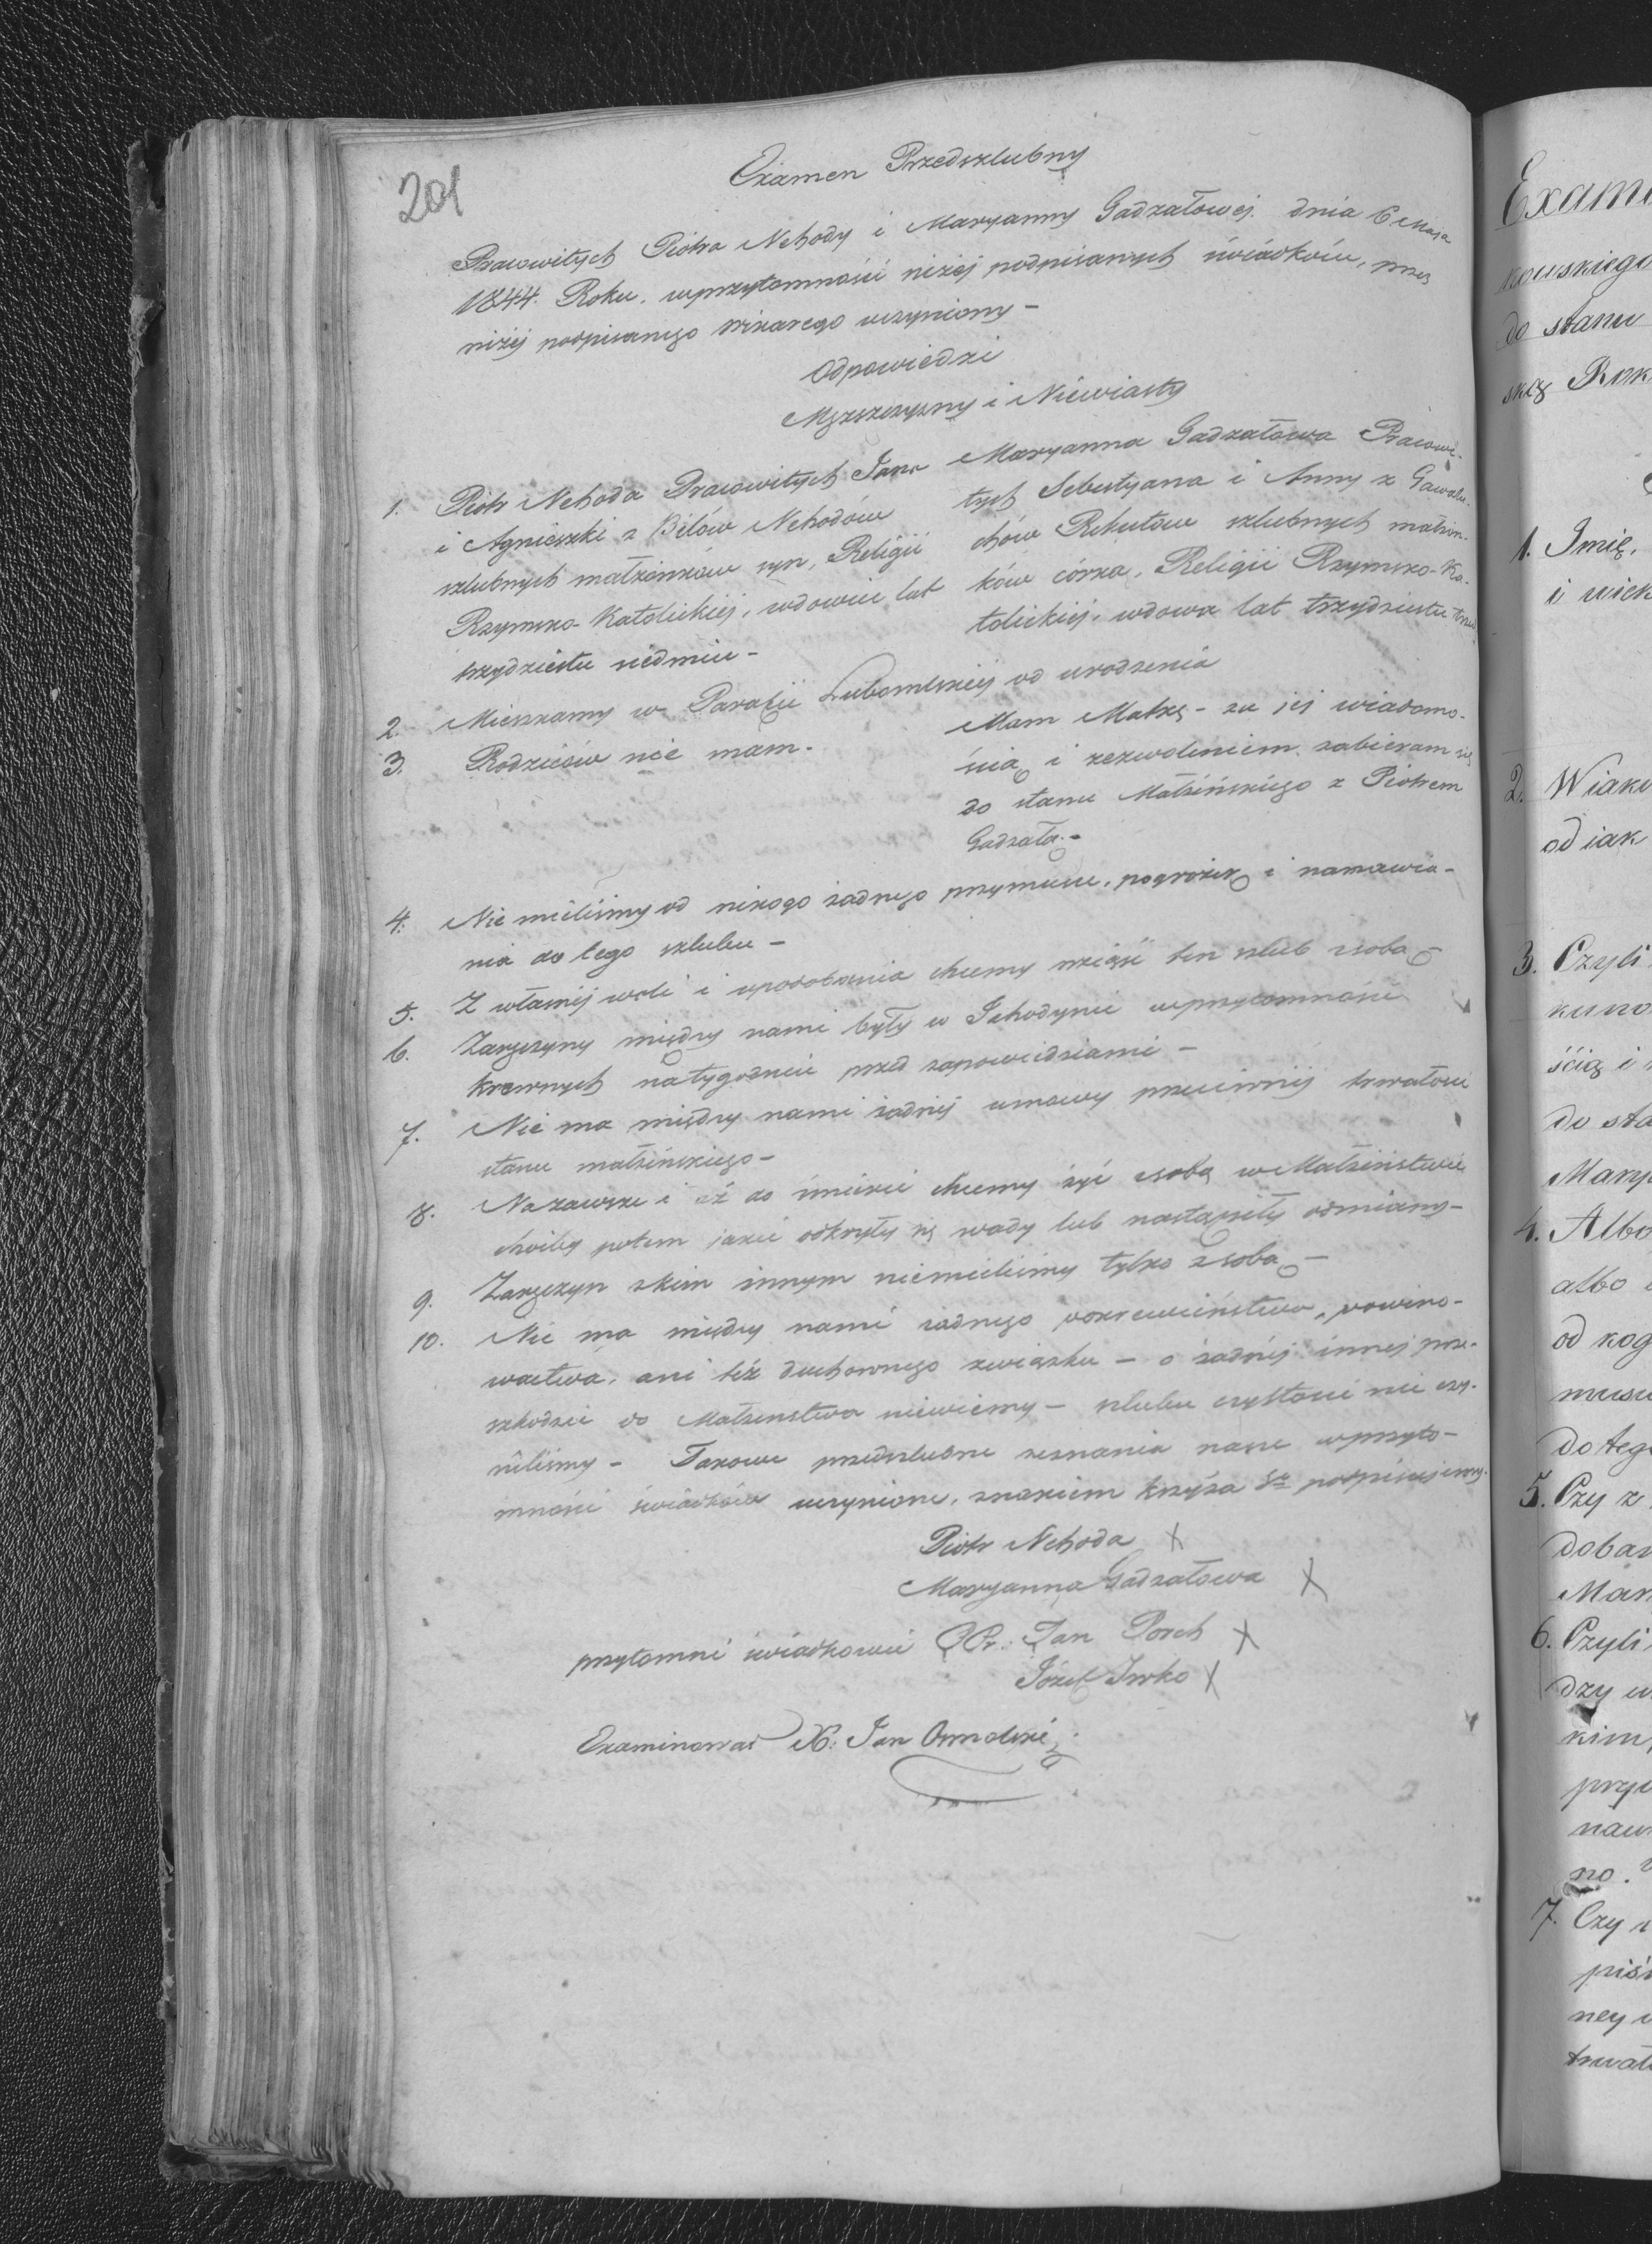 201
Examen Przedszlubny
Pracowitych Piotra Nehody i Maryanny Gadzałowej dnia 6 Maja
1844. Roku. wprzytomności niżéj podpisanych świadków, przez
niżéj podpisanego Wikarego uczyniony –
Odpowiedzi
Męzszczyzny i Niéwiasty
1. Piotr Nehoda Pracowitych Jana
i Agnieszki z Bélów Nehodów
szlubnych małżonków syn, Religii
Rzymsko-Katolickiéj, wdowiec lat
trzydzieśtu siedmiu –
Maryanna Gadzałowa Pracowi-
tych Sebestyana i Anny z Gawalu-
chów Rekutów szlubnych małżon-
ków córka, Religii Rzymsko-Ka-
tolickiéj, wdowa lat trzydziestu
2. Mieszkamy w Parafii Lubomlskiéj od urodzenia
3. Rodziców nié mam.
Mam Matkę – za jéj wiadomo-
ścią i zezwoleniem zabieram się
do stanu Małżeńskiégo z Piotrem
Gadzałą. –
4. Nie mieliśmy od nikogo żadnego przymusu, pogrożek i namawia-
nia do tego szlubu –
5. Z własnéj woli i upodobania chcemy wziąść ten szlub z sobą –
6. Zaręczyny między nami były w Schodynie wprzytomności
krewnych na tygodniu przed zapowiedziami –
7. Nié ma między nami żadnéj umowy przeciwnéj trwałości
stanu małżeńskiego –
8. Na zawsze i aż do śmierci chcemy żyć z sobą w Małżeństwie
choćby potem jakie odkryły się wady lub nastąpiły odmiany –
9. Zaręczyn zkim innym niemieliśmy tylko z sobą –
10. Nié ma między nami żadnego pokrewieństwa, powino-
wactwa, ani też duchownego związku – o żadnéj innéj prze-
szkodzie do Małżenstwa niewiémy – szlubu czystości nie czy-
niliśmy – Takowe przedszlubne zeznania nasze wprzyto-
mności świadków uczynione, znakiem krzyża Sgo podpisujemy.
Piotr Nehoda X
Maryanna Gadzałowa X
przytomni świadkowie PPr: Jan Porch X
Józef Iwko X
Examinował X: Jan Osmolski
Exami
kowskiego
do stanu
1. Imię,
2. Wiaki
od iak
3. Czyli
ścią i
do sta
Mary
4. Albo
albo
od kog
musu
do teg
5. Czy z
doban
Mar
6. Czyli
dzy w
kim,
przy
naw
no.
7. Czy
piśm
ney
trwał